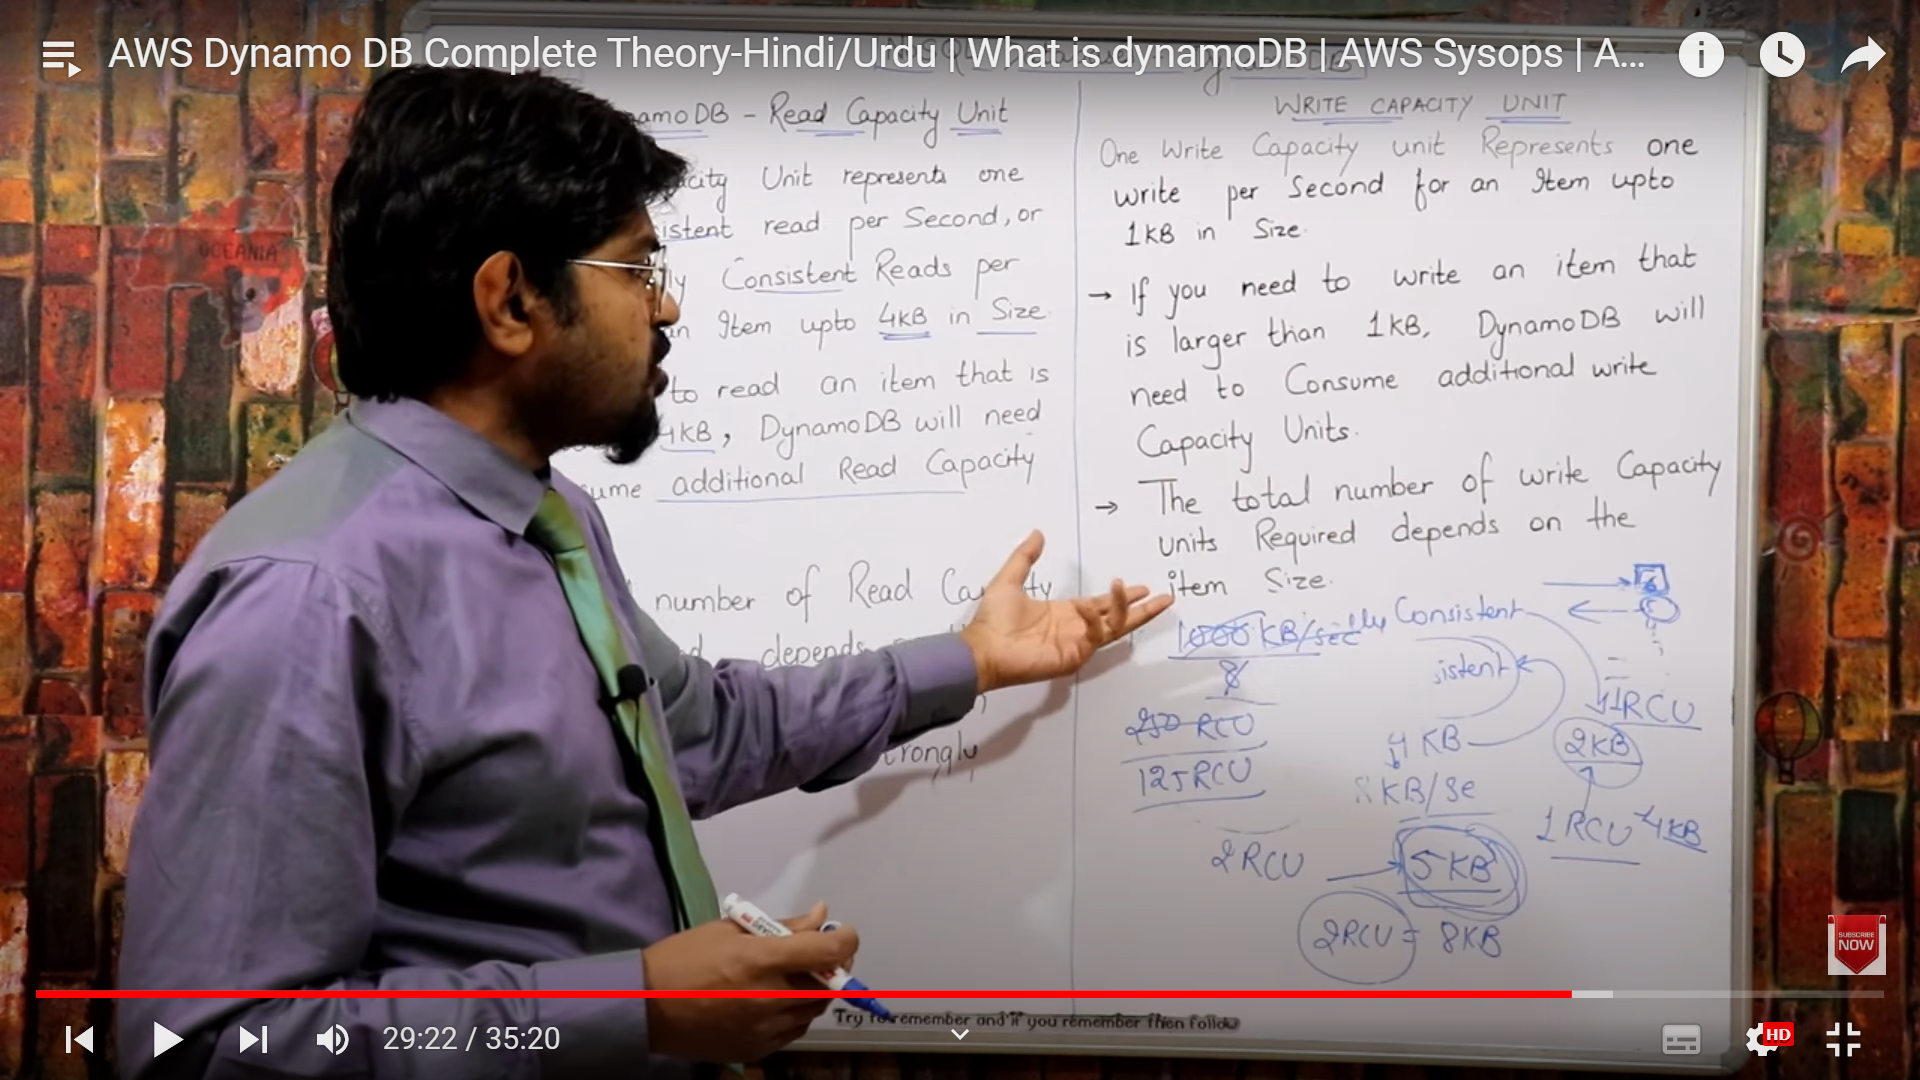 AWS Dynamo DB Complete Theory-Hindi/Urdu | What is dynamoDB | AWS Sysops | A...
amoDB - Read Capacity Unit
acity Unit represents one
istent read per Second, or
ly Consistent Reads per
an Item upto 4KB in Size.
to read an item that is
4KB, DynamoDB will need
sume additional Read Capacity
number of Read Ca ty
depends
trongly
WRITE CAPACITY UNIT
One Write Capacity unit Represents one
write per Second for an Item upto
1KB in Size.
→ If you need to write an item that
is larger than 1KB, DynamoDB will
need to Consume additional write
Capacity Units.
→ The total number of write Capacity
units Required depends on the
item Size.
1000 KB/sec lly Consistent
8
istent
250 RCU
125RCU
1RCU
4 KB
2KB
8KB/Se
1 RCU 4KB
2RCU
5 KB
2RCU = 8KB
OCEANIA
SUBSCRIBE
NOW
Try to remember and if you remember then follow
29:22 / 35:20
HD